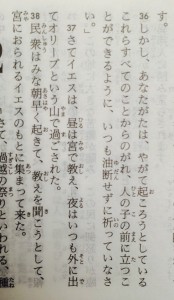 す。
36しかし、あなたがたは、やがて起ころうとしている
これらすべてのことからのがれ、人の子の前に立つこ
とができるように、いつも油断せずに祈っていなさ
い。」
37さてイエスは、昼は宮で教え、夜はいつも外に出
てオリーブという山で過ごされた。
38民衆はみな朝早く起きて、教えを聞こうとして、
宮におられるイエスのもとに集まって来た。
さて、過越の祭りといわれる、